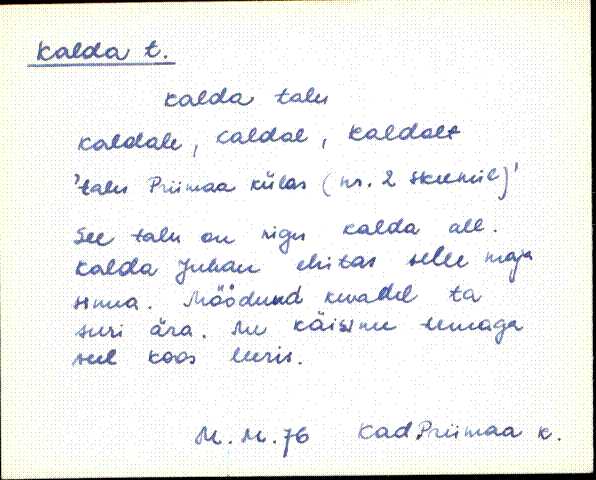 Kalda t.
Kalda talu
Kaldale, Kaldal, Kaldalt
'talu Priimaa külas (nr. 2 skeemil)'
See talu on nigu kalda all.
Kalda Juhan ehitas selle maja
sinna. Möödund kuvadel ta
suri ära. Me käisime temaga
seel koos leeris.
M. M. 76 Kad Priimaa k.